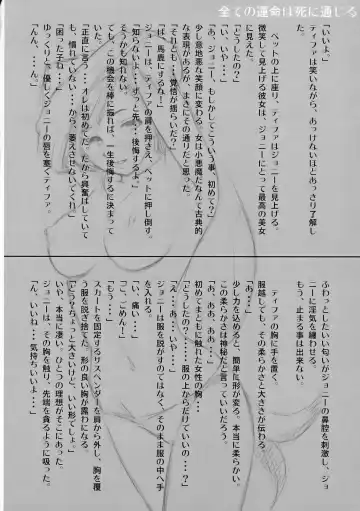 全ての運命は死に通じる
「いいよ。」
ティファは笑いながら、あっけないほどあっさり了解した。
ベットの上に座り、ティファはジョニーを見上げる。
微笑して見上げる彼女は、ジョニーにとって最高の美女に見えた。
「どうしたの？」
「あ、ジョニー、もしかしてこういう事、初めて？」
少し意地悪な笑顔に変わる。女は小悪魔だなんて古典的な表現があるが、まさにその通りだと思った。
「それとも・・・覚悟が揺らいだ？」
「ば、馬鹿にするな！」
「知らないよ・・・ずっと先・・・後悔するよ」
ジョニーは、ティファの肩を押さえ、ベットに押し倒す。
そうかも知れない。
でも、この機会を棒に振れば、一生後悔するに決まっていた。
「正直に言う・・・オレは初めてだ。だから興奮はしていても、慣れていない・・・から、萎えさせないでくれ!!」
「困った子・・・」
ゆっくりと、優しくジョニーの唇を塞ぐティファ
「んん、・・・ん。」
ふわっとしたいい匂いがジョニーの鼻腔を刺激し、ジョニーに淫気を纏わせる。
もう、止まる事は出来ない。
ティファの胸に手を置く、
服越しでも、その柔らかさと大きさが伝わる。
「あ・・・」
少し力を込めると、簡単に形が変る。本当に柔らかい。
この柔らかさは神秘だと言っていいいだろう。
「あ、ああ、ああ・・・」
初めてまともに触れた女性の胸・・・
「どうしたの？・・・・・・服の上からだけでいいの・・・？」
「え・・・あ・・・いや・・・」
ジョニーは服を脱がすのではなく、そのまま服の中へ手を入れる。
「い、痛い・・・」
「ご、ごめん！」
「もう・・・」
スカートを固定するサスペンダーを肩から外し、胸を覆う服を脱ぎ捨てた。形の良い胸が露わになる
「どう？ちょーと大きいけど、いい形でしょ。」
いや、本当に凄い。ひとつの理想がそこにあった。
ジョニーは、その胸を触り、先端を貪るように吸った。
「ん、いいね・・・気持ちいいよ・・・」